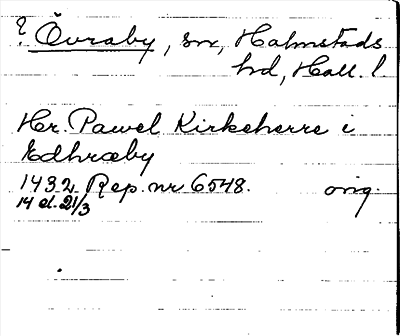 ? Övraby, sn, Halmstads
hd, Hall. l
Hr. Pawel Kirkeherre i
Edhræby
1432 Rep. nr 6548. orig.
14 d. 21/3